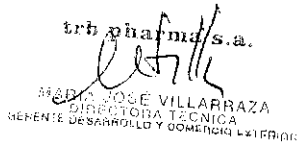 trb pharma s.a.
MARIA JOSÉ VILLARRAZA
DIRECTORA TÉCNICA
GERENTE DESARROLLO Y COMERCIO EXTERIOR